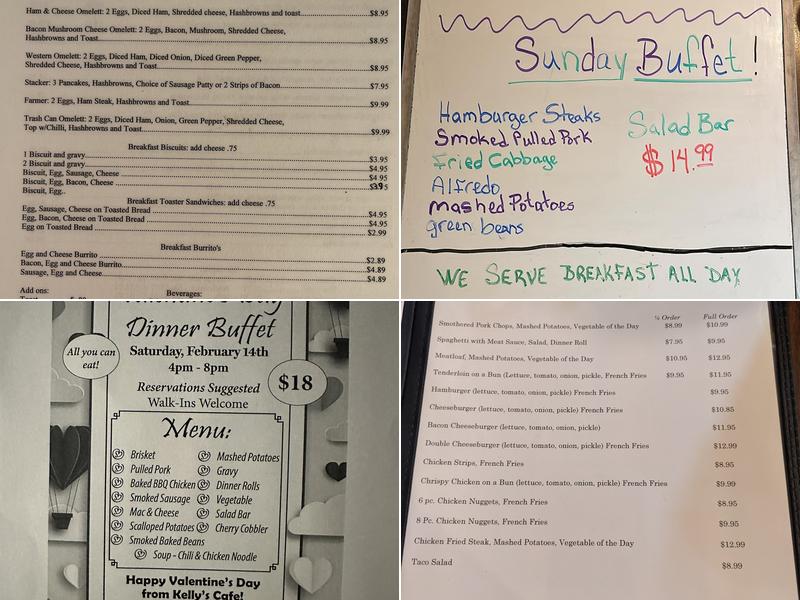 Ham & Cheese Omelett: 2 Eggs, Diced Ham, Shredded cheese, Hashbrowns and toast $8.95
Bacon Mushroom Cheese Omelett: 2 Eggs, Bacon, Mushroom, Shredded Cheese,
Hashbrowns and Toast $8.95
Western Omelett: 2 Eggs, Diced Ham, Diced Onion, Diced Green Pepper,
Shredded Cheese, Hashbrowns and Toast $8.95
Stacker: 3 Pancakes, Hashbrowns, Choice of Sausage Patty or 2 Strips of Bacon $7.95
Farmer: 2 Eggs, Ham Steak, Hashbrowns and Toast $9.99
Trash Can Omelett: 2 Eggs, Diced Ham, Onion, Green Pepper, Shredded Cheese,
Top w/Chilli, Hashbrowns and Toast $9.99
Breakfast Biscuits: add cheese .75
1 Biscuit and gravy $3.95
2 Biscuit and gravy $4.95
Biscuit, Egg, Sausage, Cheese $4.95
Biscuit, Egg, Bacon, Cheese $4.95
Biscuit, Egg..
Breakfast Toaster Sandwiches: add cheese .75
Egg, Sausage, Cheese on Toasted Bread $4.95
Egg, Bacon, Cheese on Toasted Bread $4.95
Egg on Toasted Bread $2.99
Breakfast Burrito's
Egg and Cheese Burrito $2.89
Bacon, Egg and Cheese Burrito $4.89
Sausage, Egg and Cheese $4.89
Add ons:
Beverages:
Sunday Buffet!
Hamburger Steaks
Smoked Pulled Pork
Fried Cabbage
Alfredo
mashed Potatoes
green beans
Salad Bar
$14.99
WE SERVE BREAKFAST ALL DAY
Dinner Buffet
Saturday, February 14th
4pm - 8pm
All you can
eat!
Reservations Suggested
Walk-Ins Welcome
$18
Menu:
Brisket
Pulled Pork
Baked BBQ Chicken
Smoked Sausage
Mac & Cheese
Scalloped Potatoes
Smoked Baked Beans
Mashed Potatoes
Gravy
Dinner Rolls
Vegetable
Salad Bar
Cherry Cobbler
Soup - Chili & Chicken Noodle
Happy Valentine's Day
from Kelly's Cafe!
½ Order Full Order
Smothered Pork Chops, Mashed Potatoes, Vegetable of the Day $8.99 $10.99
Spaghetti with Meat Sauce, Salad, Dinner Roll $7.95 $9.95
Meatloaf, Mashed Potatoes, Vegetable of the Day $10.95 $12.95
Tenderloin on a Bun (Lettuce, tomato, onion, pickle, French Fries $9.95 $11.95
Hamburger (lettuce, tomato, onion, pickle) French Fries $9.95
Cheeseburger (lettuce, tomato, onion, pickle) French Fries $10.85
Bacon Cheeseburger (lettuce, tomato, onion, pickle) $11.95
Double Cheeseburger (lettuce, tomato, onion, pickle) French Fries $12.99
Chicken Strips, French Fries $8.95
Chrispy Chicken on a Bun (lettuce, tomato, onion, pickle) French Fries $9.99
6 pc. Chicken Nuggets, French Fries $8.95
8 Pc. Chicken Nuggets, French Fries $9.95
Chicken Fried Steak, Mashed Potatoes, Vegetable of the Day $12.99
Taco Salad $8.99